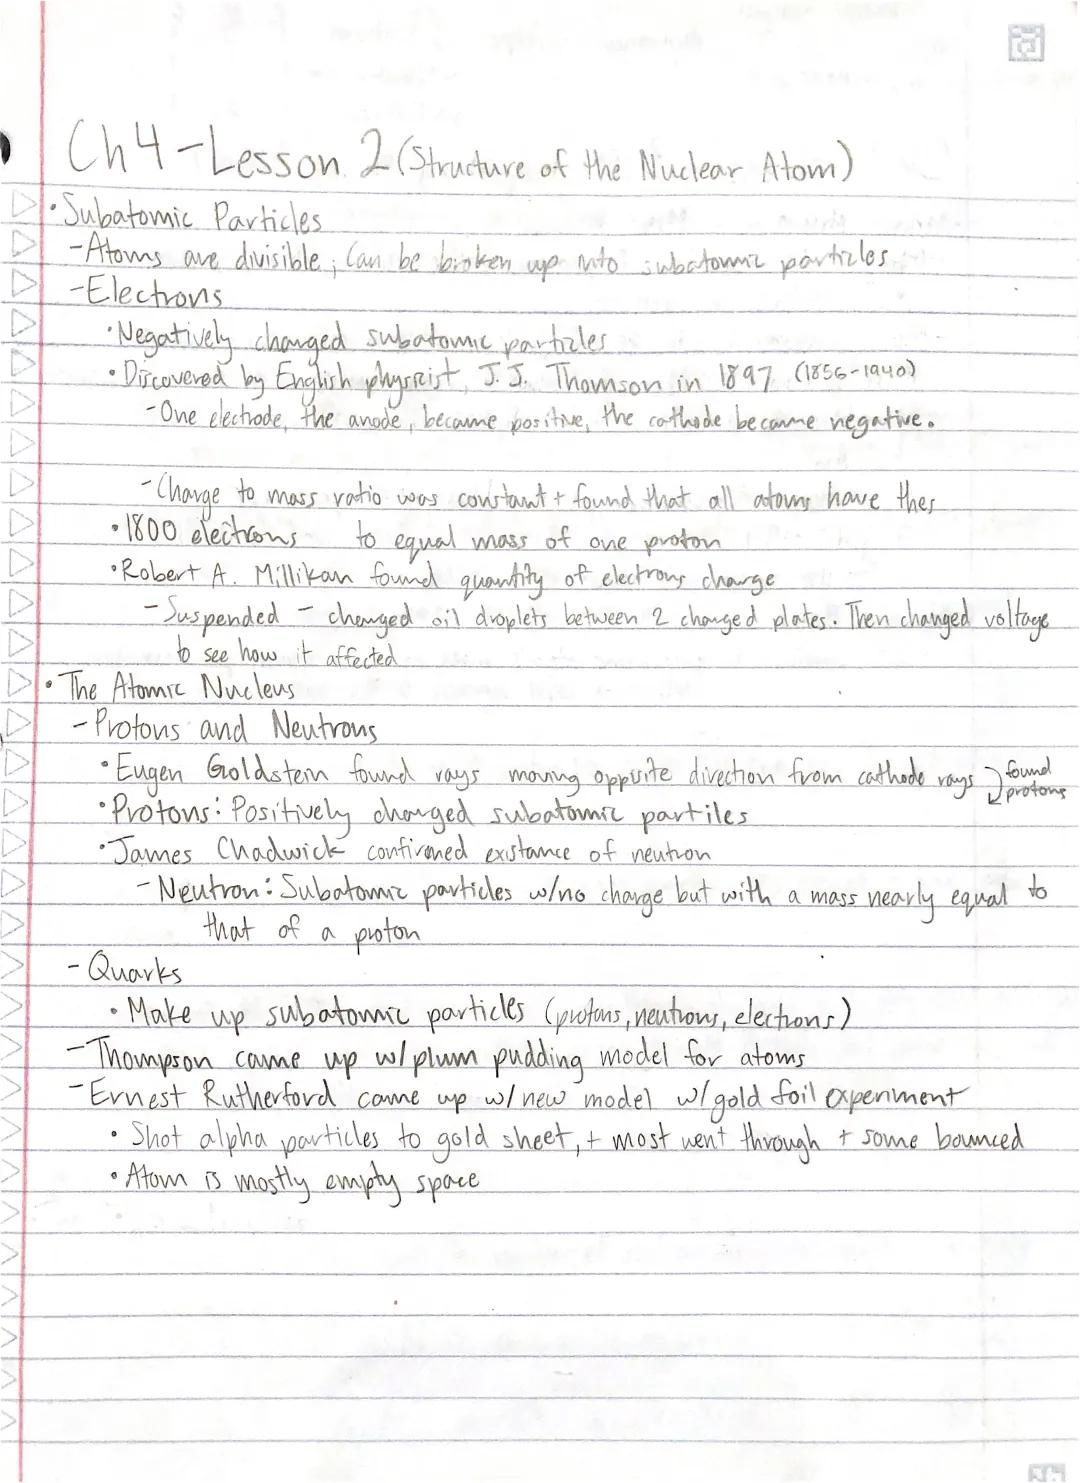 Ch4-Lesson 2 (Structure of the Nuclear Atom)
• Subatomic Particles
- Atoms are divisible; Can be broken up into subatomic particles
- Electrons
• Negatively charged subatomic particles
• Discovered by English physicist J.J. Thomson in 1897 (1856-1940)
- One electrode, the anode, became positive, the cathode became negative.
- Charge to mass ratio was constant + found that all atoms have thes
• 1800 electrons to equal mass of one proton
• Robert A. Millikan found quantity of electrons charge
- Suspended - charged oil droplets between 2 charged plates. Then changed voltage
to see how it affected
• The Atomic Nucleus
- Protons and Neutrons
• Eugen Goldstein found rays moving opposite direction from cathode rays found
protons
• Protons: Positively charged subatomic partiles
• James Chadwick confirmed existance of neutron
- Neutron: Subatomic particles w/no charge but with a mass nearly equal to
that of a proton
- Quarks
• Make up subatomic particles (protons, neutrons, electrons)
- Thompson came up w/ plum pudding model for atoms
- Ernest Rutherford came up w/ new model w/ gold foil experiment
• Shot alpha particles to gold sheet, + most went through + some bounced
• Atom is mostly empty space